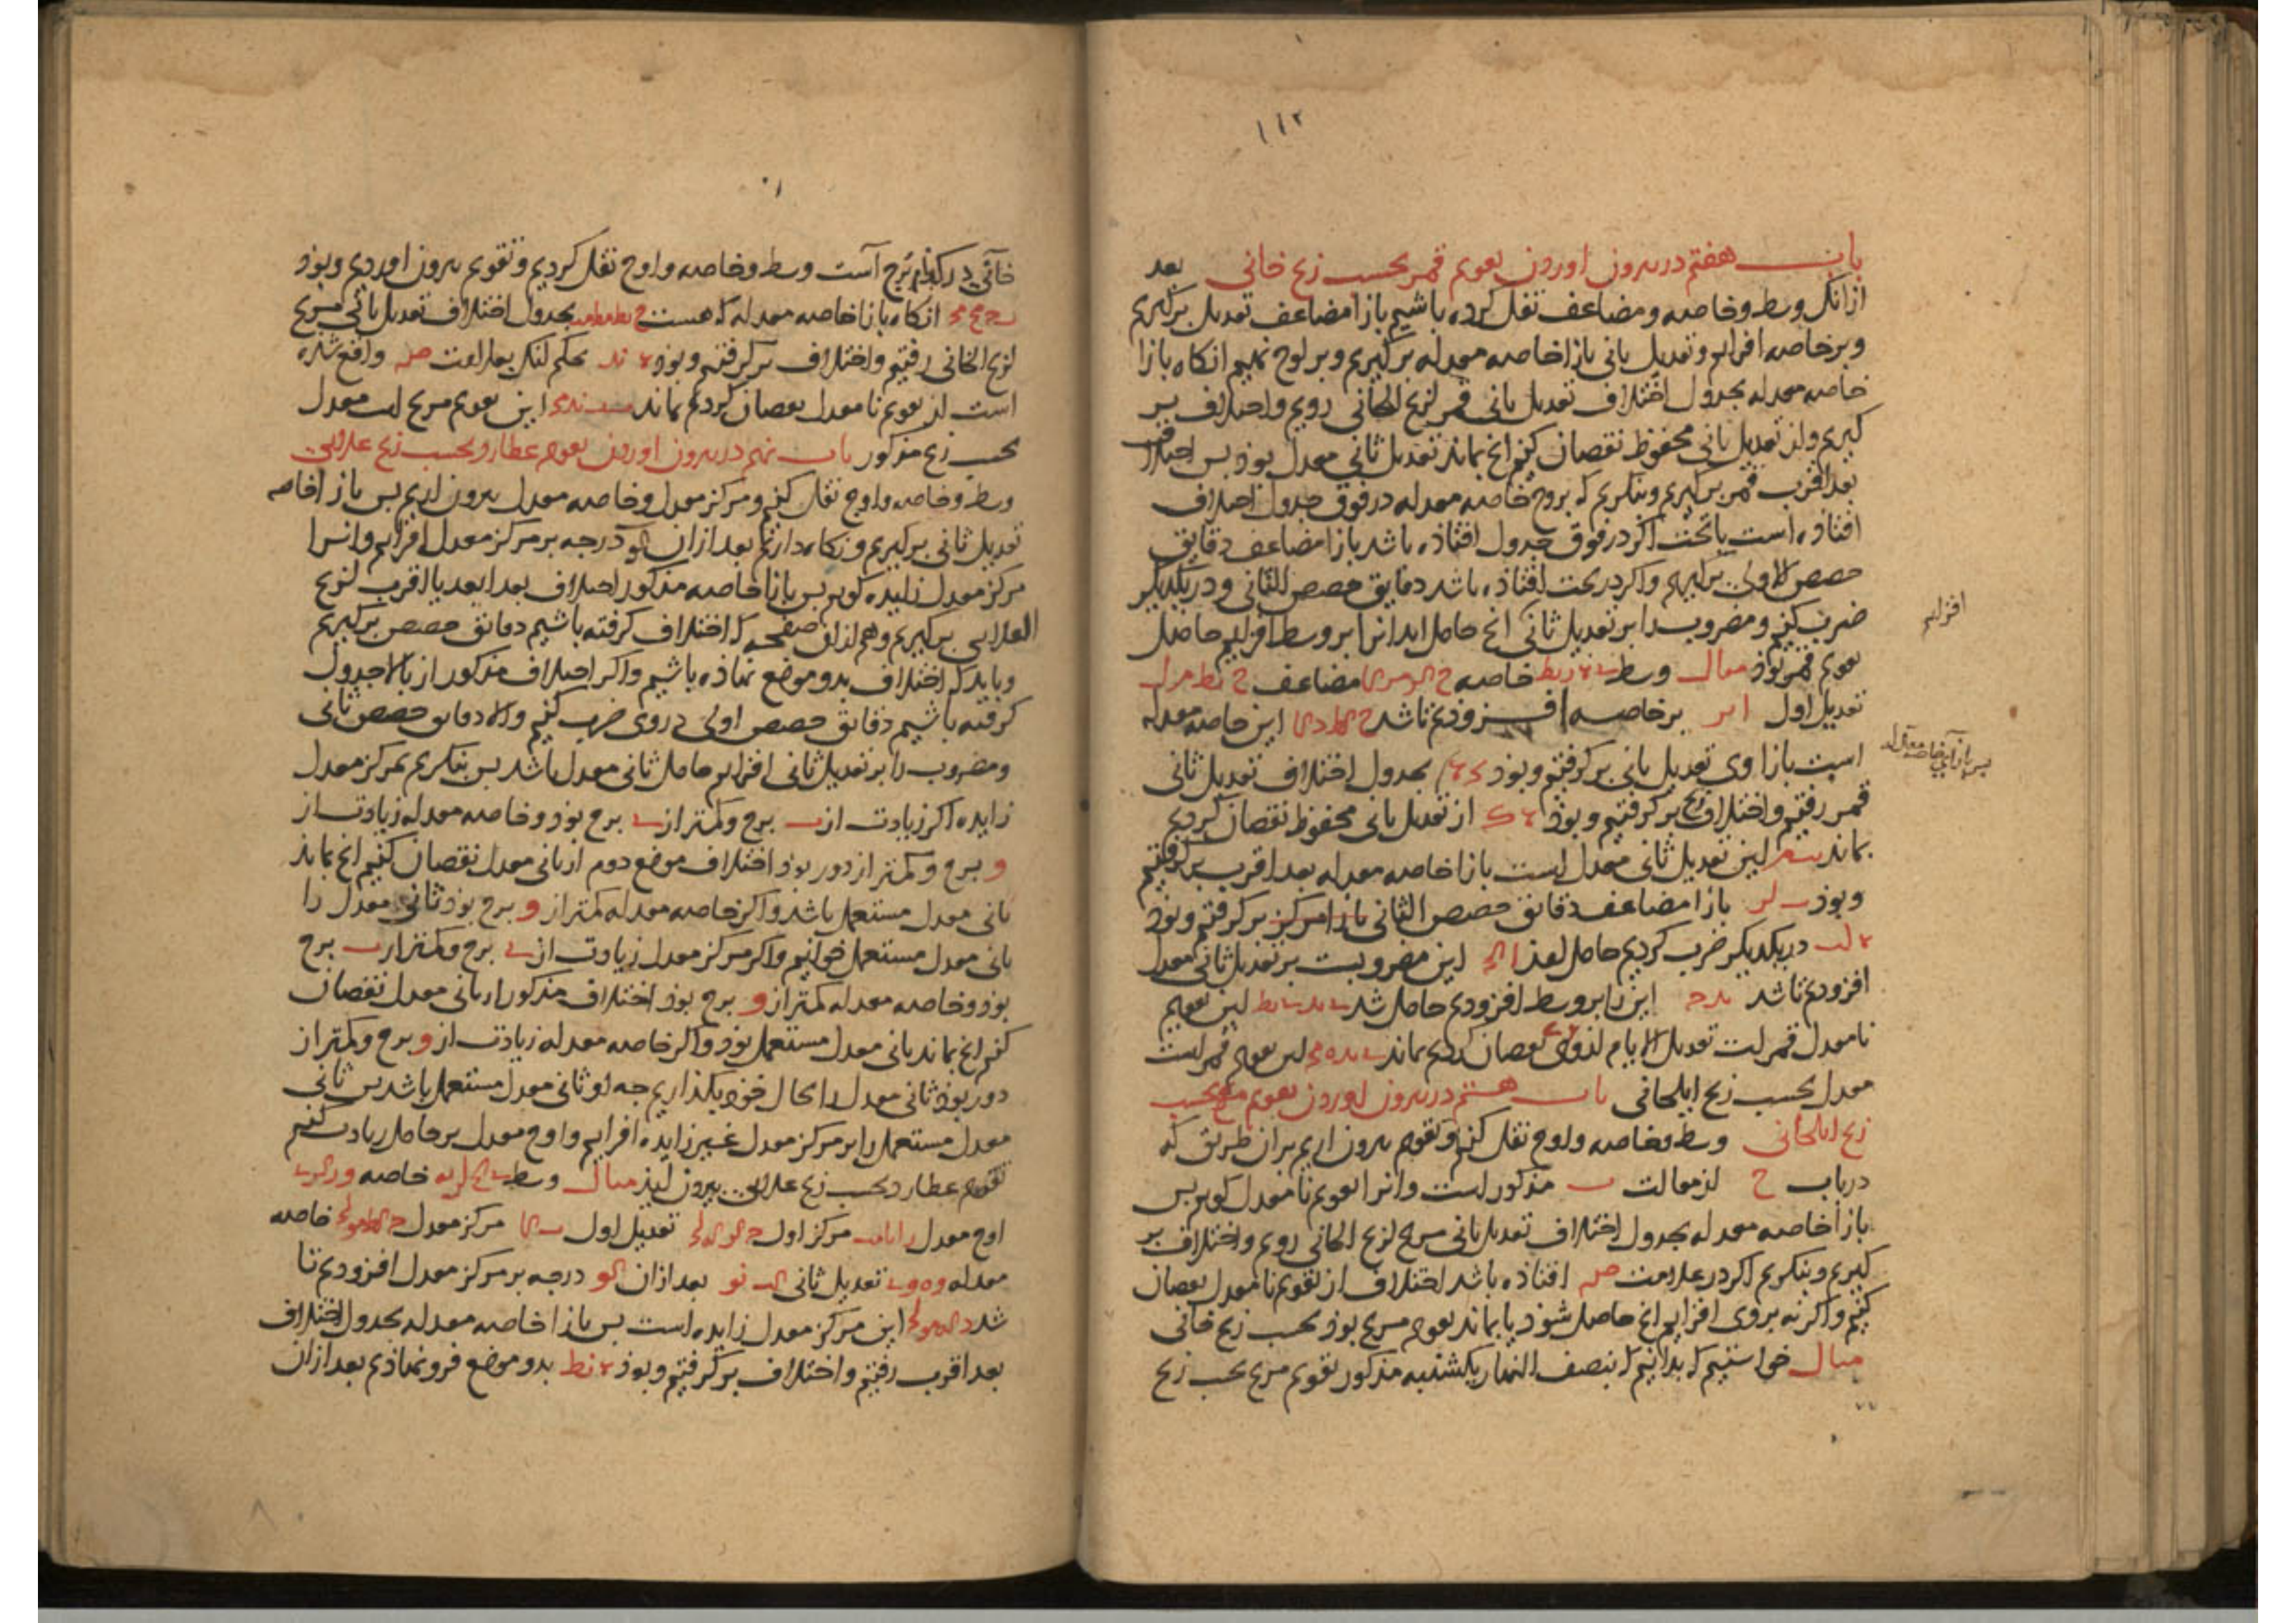 ۱۱۲
باب هفتم در بیرون اوردن تقویم قمر بحسب زیج خانی بعد
ازانک وسط و خاصه و مضاعف نقل کرده باشیم بازا مضاعف تعدیل برکیریم
و بر خاصه افزاییم و تعدیل ثانی بازا خاصه معدله برکیریم و بر لوح نهیم انکاه بازا
خاصه معدله بجدول اختلاف تعدیل ثانی قمر از زیج ایلخانی رویم و اختلاف بر
کیریم و از تعدیل ثانی محفوظ نقصان کنیم انچ بماند تعدیل ثانی معدل بوذ بس اختلاف
بعد اقرب قمر برکیریم و بنکریم که بروج خاصه معدله در فوق جدول اختلاف
افتاذه است یا تحت اکر در فوق جدول افتاذه باشد بازا مضاعف دقایق
حصص الاولی برکیریم و اکر در تحت افتاذه باشد دقایق حصص الثانی و در یکدیکر
ضرب کنیم و مضروب را بر تعدیل ثانی انچ حاصل اید انرا بر وسط افزاییم حاصل
افزاییم
تقویم قمر بوذ مثال وسط خاصه مضاعف
تعدیل اول بر خاصه افزودیم تا شد این خاصه معدله
است بازا وی تعدیل ثانی برکرفتیم و بوذ بجدول اختلاف تعدیل ثانی
بس بازای خاصه معدله
قمر رفتیم و اختلاف برکرفتیم و بوذ از تعدیل ثانی محفوظ نقصان کردیم
بماند این تعدیل ثانی معدل است بازا خاصه معدله بعد اقرب برکرفتیم
و بوذ بازا مضاعف دقایق حصص الثانی بازا مرکز برکرفتیم و بوذ
در یکدیکر ضرب کردیم حاصل امذ این مضروبست بر تعدیل ثانی معدل
افزودیم تا شد این را بر وسط افزودیم حاصل شد این تقویم
نامعدل قمر است تعدیل الایام از وی نقصان کردیم بماند این تقویم قمر است
معدل بحسب زیج ایلخانی باب هشتم در بیرون اوردن تقویم مریخ بحسب
زیج ایلخانی وسط و خاصه و اوج نقل کنیم و تقویم بیرون اریم بران طریق که
در باب ح از مقالت مذکور است و انرا تقویم نامعدل کوییم بس
بازا خاصه معدله بجدول اختلاف تعدیل ثانی مریخ از زیج ایلخانی رویم و اختلاف بر
کیریم و بنکریم اکر در علامت صه افتاذه باشد اختلاف از تقویم نامعدل نقصان
کنیم و اکر نه بر وی افزاییم انچ حاصل شوذ یا بماند تقویم مریخ بوذ بحسب زیج خانی
مثال خواستیم که بدانیم که بنصف النهار یکشنبه مذکور تقویم مریخ بحسب زیج
خانی در کدام برج است وسط و خاصه و اوج نقل کردیم و تقویم بیرون اوردیم و بوذ
انکاه بازا خاصه معدله که هست بجدول اختلاف تعدیل ثانی مریخ
از زیج ایلخانی رفتیم و اختلاف برکرفتیم و بوذ بحکم انک بعلامت صه واقع شده
است از تقویم نامعدل نقصان کردیم بماند این تقویم مریخ است معدل
بحسب زیج مذکور باب نهم در بیرون اوردن تقویم عطارد بحسب زیج علایی
وسط و خاصه و اوج نقل کنیم و مرکز معدل و خاصه معدل بیرون اریم بس بازا خاصه
تعدیل ثانی برکیریم و نکاه داریم بعد ازان درجه بر مرکز معدل افزاییم و انرا
مرکز معدل زایده کوییم بس بازا خاصه مذکور اختلاف بعد ابعد یا اقرب از زیج
العلایی برکیریم و هم ازان صفحه که اختلاف کرفته باشیم دقائق حصص برکیریم
و بایذ که اختلاف بدو موضع نهاذه باشیم و اکر اختلاف مذکور از بالا جدول
کرفته باشیم دقائق حصص اولی در وی ضرب کنیم و الا دقایق حصص ثانی
و مضروب را بر تعدیل ثانی افزاییم حاصل ثانی معدل باشد بس بنکریم بمرکز معدل
زایده اکر زیادت از برج و کمتر از برج بوذ و خاصه معدله زیادت از
و برج و کمتر از دور بوذ اختلاف موضع دوم از ثانی معدل نقصان کنیم انچ بماند
ثانی معدل مستعمل باشد و اکر خاصه معدله کمتر از و برج بوذ ثانی معدل را
ثانی معدل مستعمل خوانیم و اکر مرکز معدل زیادت از برج و کمتر از برج
بوذ و خاصه معدله کمتر از و برج بوذ اختلاف مذکور از ثانی معدل نقصان
کنیم انچ بماند ثانی معدل مستعمل بوذ و اکر خاصه معدله زیادت از و برج و کمتر از
دور بوذ ثانی معدل را بحال خوذ بکذاریم چه او ثانی معدل مستعمل باشد بس ثانی
معدل مستعمل را بر مرکز معدل غیر زایده افزاییم و اوج معدل بر حاصل زیادت کنیم
تقویم عطارد بحسب زیج علایی بیرون ایذ مثال وسط خاصه
اوج معدل مرکز اول تعدیل اول مرکز معدل خاصه
معدله تعدیل ثانی بعد ازان درجه بر مرکز معدل افزودیم تا
شد این مرکز معدل زایده است بس بازا خاصه معدله بجدول اختلاف
بعد اقرب رفتیم و اختلاف برکرفتیم و بوذ بدو موضع فرو نهاذیم بعد ازان